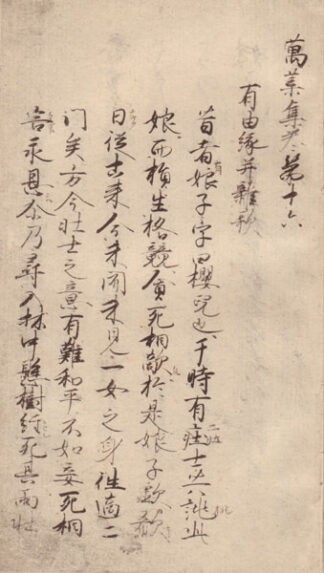 萬葉集巻第十六
有由縁并雜歌
昔者有娘子字曰櫻兒也于時有二壮士共誂此
娘而捐生格競貪死相敵於是娘子歔欷
曰従古来今未聞未見一女之身徃適二
門矣方今壮士之意有難和平不如妾死相
害永息尒乃尋入林中懸樹經死其両壮